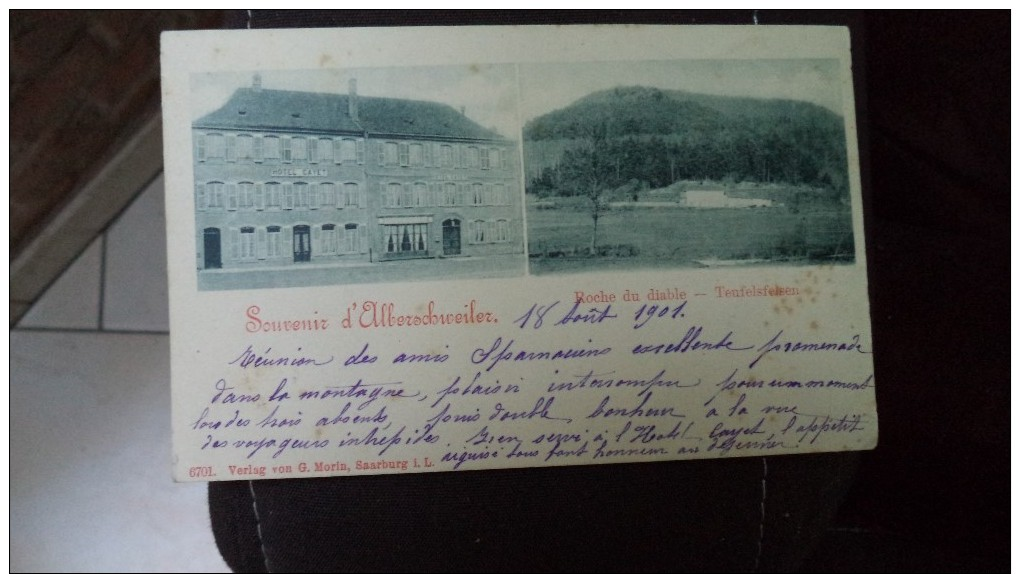 HOTEL CAYET
Roche du diable — Teufelsfelsen
Souvenir d'Alberschweiler.
18 Août 1901.
Réunion des amis Sparnaciens excellente promenade
dans la montagne, plaisir interrompu pour un moment
lors des trois absents, puis double bonheur à la vue
des voyageurs intrépides. Bien servi à l'Hotel Cayet, l'appetit
aiguisé tous font honneur au déjeuner.
6701. Verlag von G. Morin, Saarburg i. L.